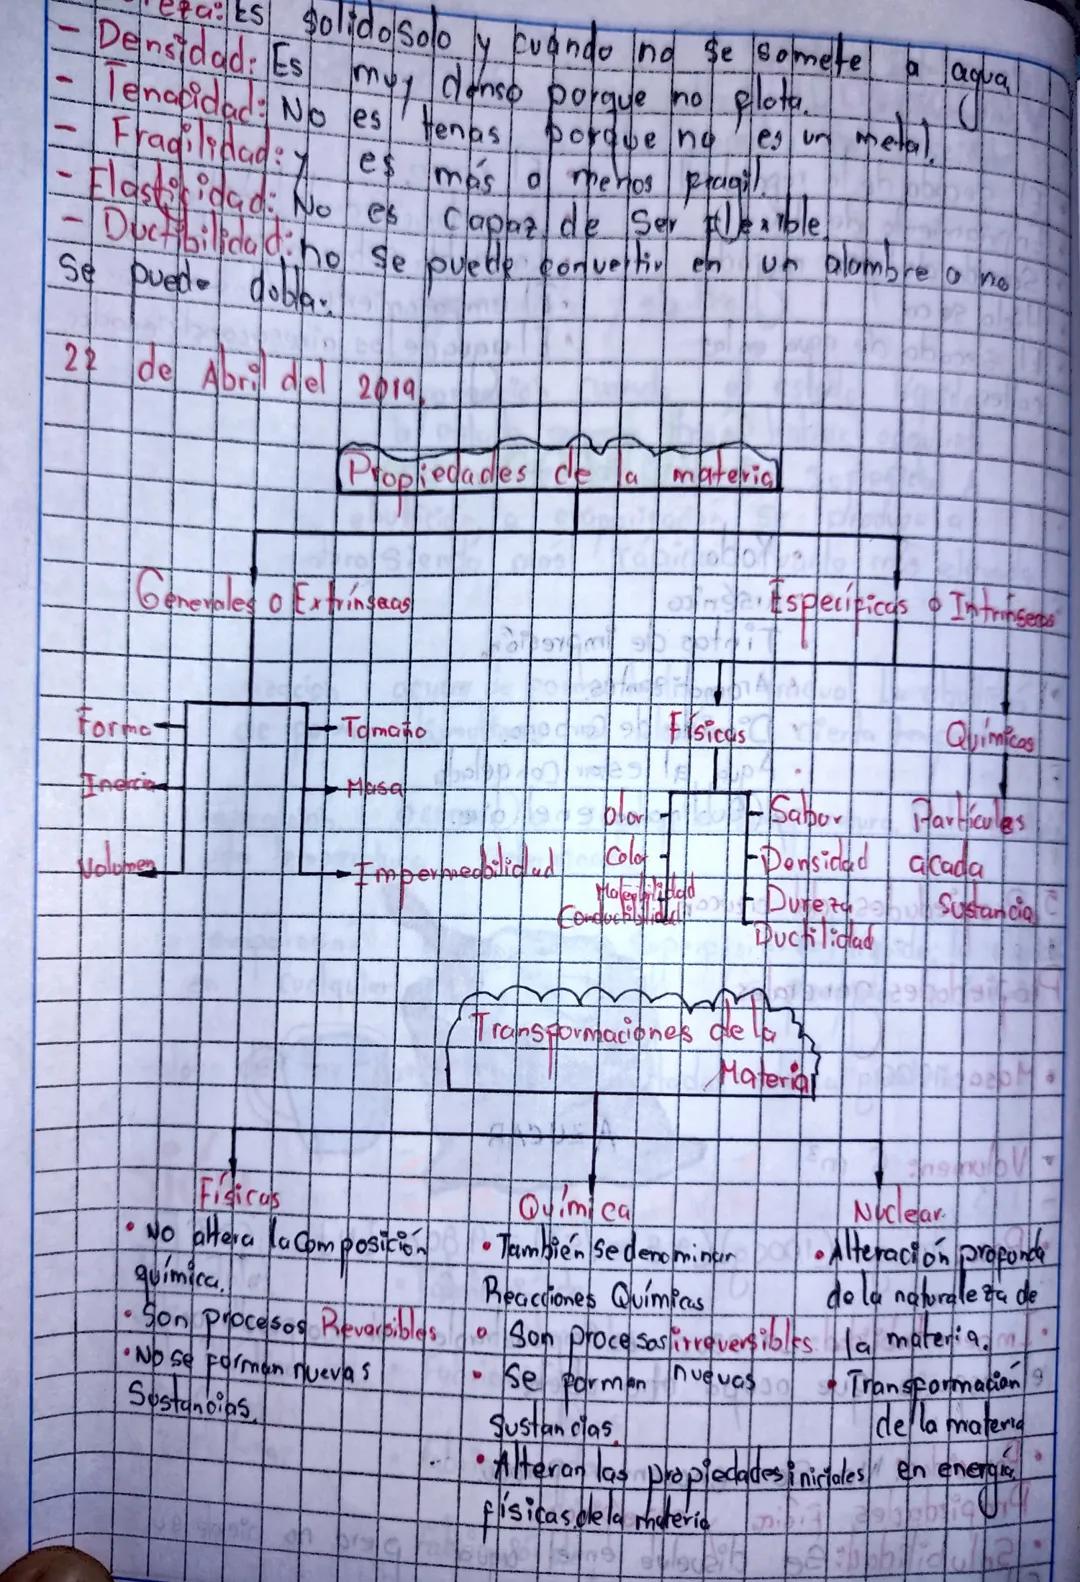 Es solido solo y cuando no se somete a agua
- Densidad: Es muy denso porque no flota.
- Tenacidad: No es tenas porque no es un metal.
- Fragilidad: y es más o menos fragil.
- Elasticidad: No es capaz de ser flexible
- Ductibilidad: no se puede convertir en un alambre o no
se puede doblar.
22 de Abril del 2019.
Propiedades de la materia
Generales o Extrínsecas
Específicas o Intrínsecas
Forma
Tamaño
Inercia
Masa
Volumen
Impermeabilidad
Físicas
Químicas
Olor
Sabor
Color
Densidad
Maleabilidad
Dureza
Conductibilidad
Ductilidad
Partículas
acada
Sustancia
Transformaciones de la
Materia
Físicas
• No altera la composición
química.
• Son procesos Reversibles
• No se forman nuevas
Sustancias.
Química
• También se denominan
Reacciones Químicas
• Son procesos irreversibles
• Se forman nuevas
Sustancias.
• Alteran las propiedades iniciales
físicas de la materia
Nuclear
• Alteración profunda
de la naturaleza de
la materia.
• Transformación
de la materia
en energía.